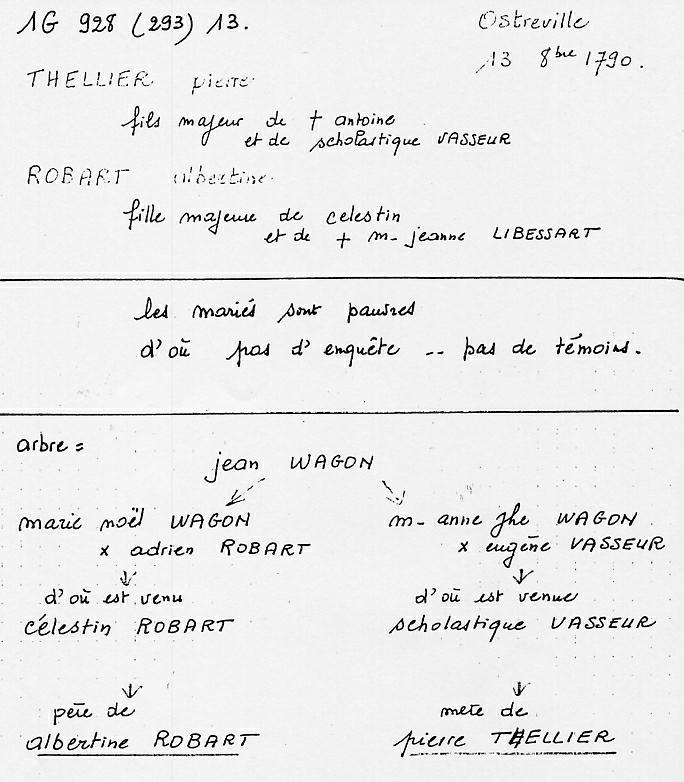 1G 928 (293) 13.
Ostreville
13 8bre 1790.
THELLIER pierre
fils majeur de + antoine
et de scholastique VASSEUR
ROBART albertine
fille majeure de celestin
et de + m- jeanne LIBESSART
les mariés sont pauvres
d'où pas d'enquête .. pas de témoins.
arbre =
jean WAGON
marie noël WAGON
x adrien ROBART
d'où est venu
célestin ROBART
père de
albertine ROBART
m- anne jhe WAGON
x eugène VASSEUR
d'où est venue
scholastique VASSEUR
mere de
pierre THELLIER